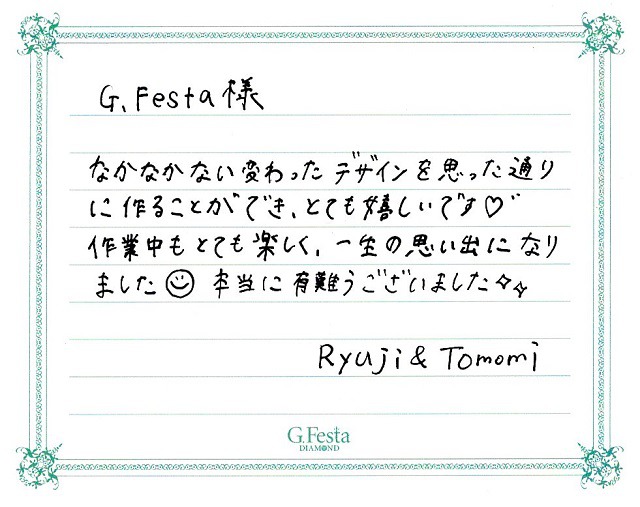 G.Festa様
なかなかない変わったデザインを思った通り
に作ることができ、とても嬉しいです♡
作業中もとても楽しく、一生の思い出になり
ました☺ 本当に有難うございました✧✧
Ryuji & Tomomi
G.Festa
DIAMOND